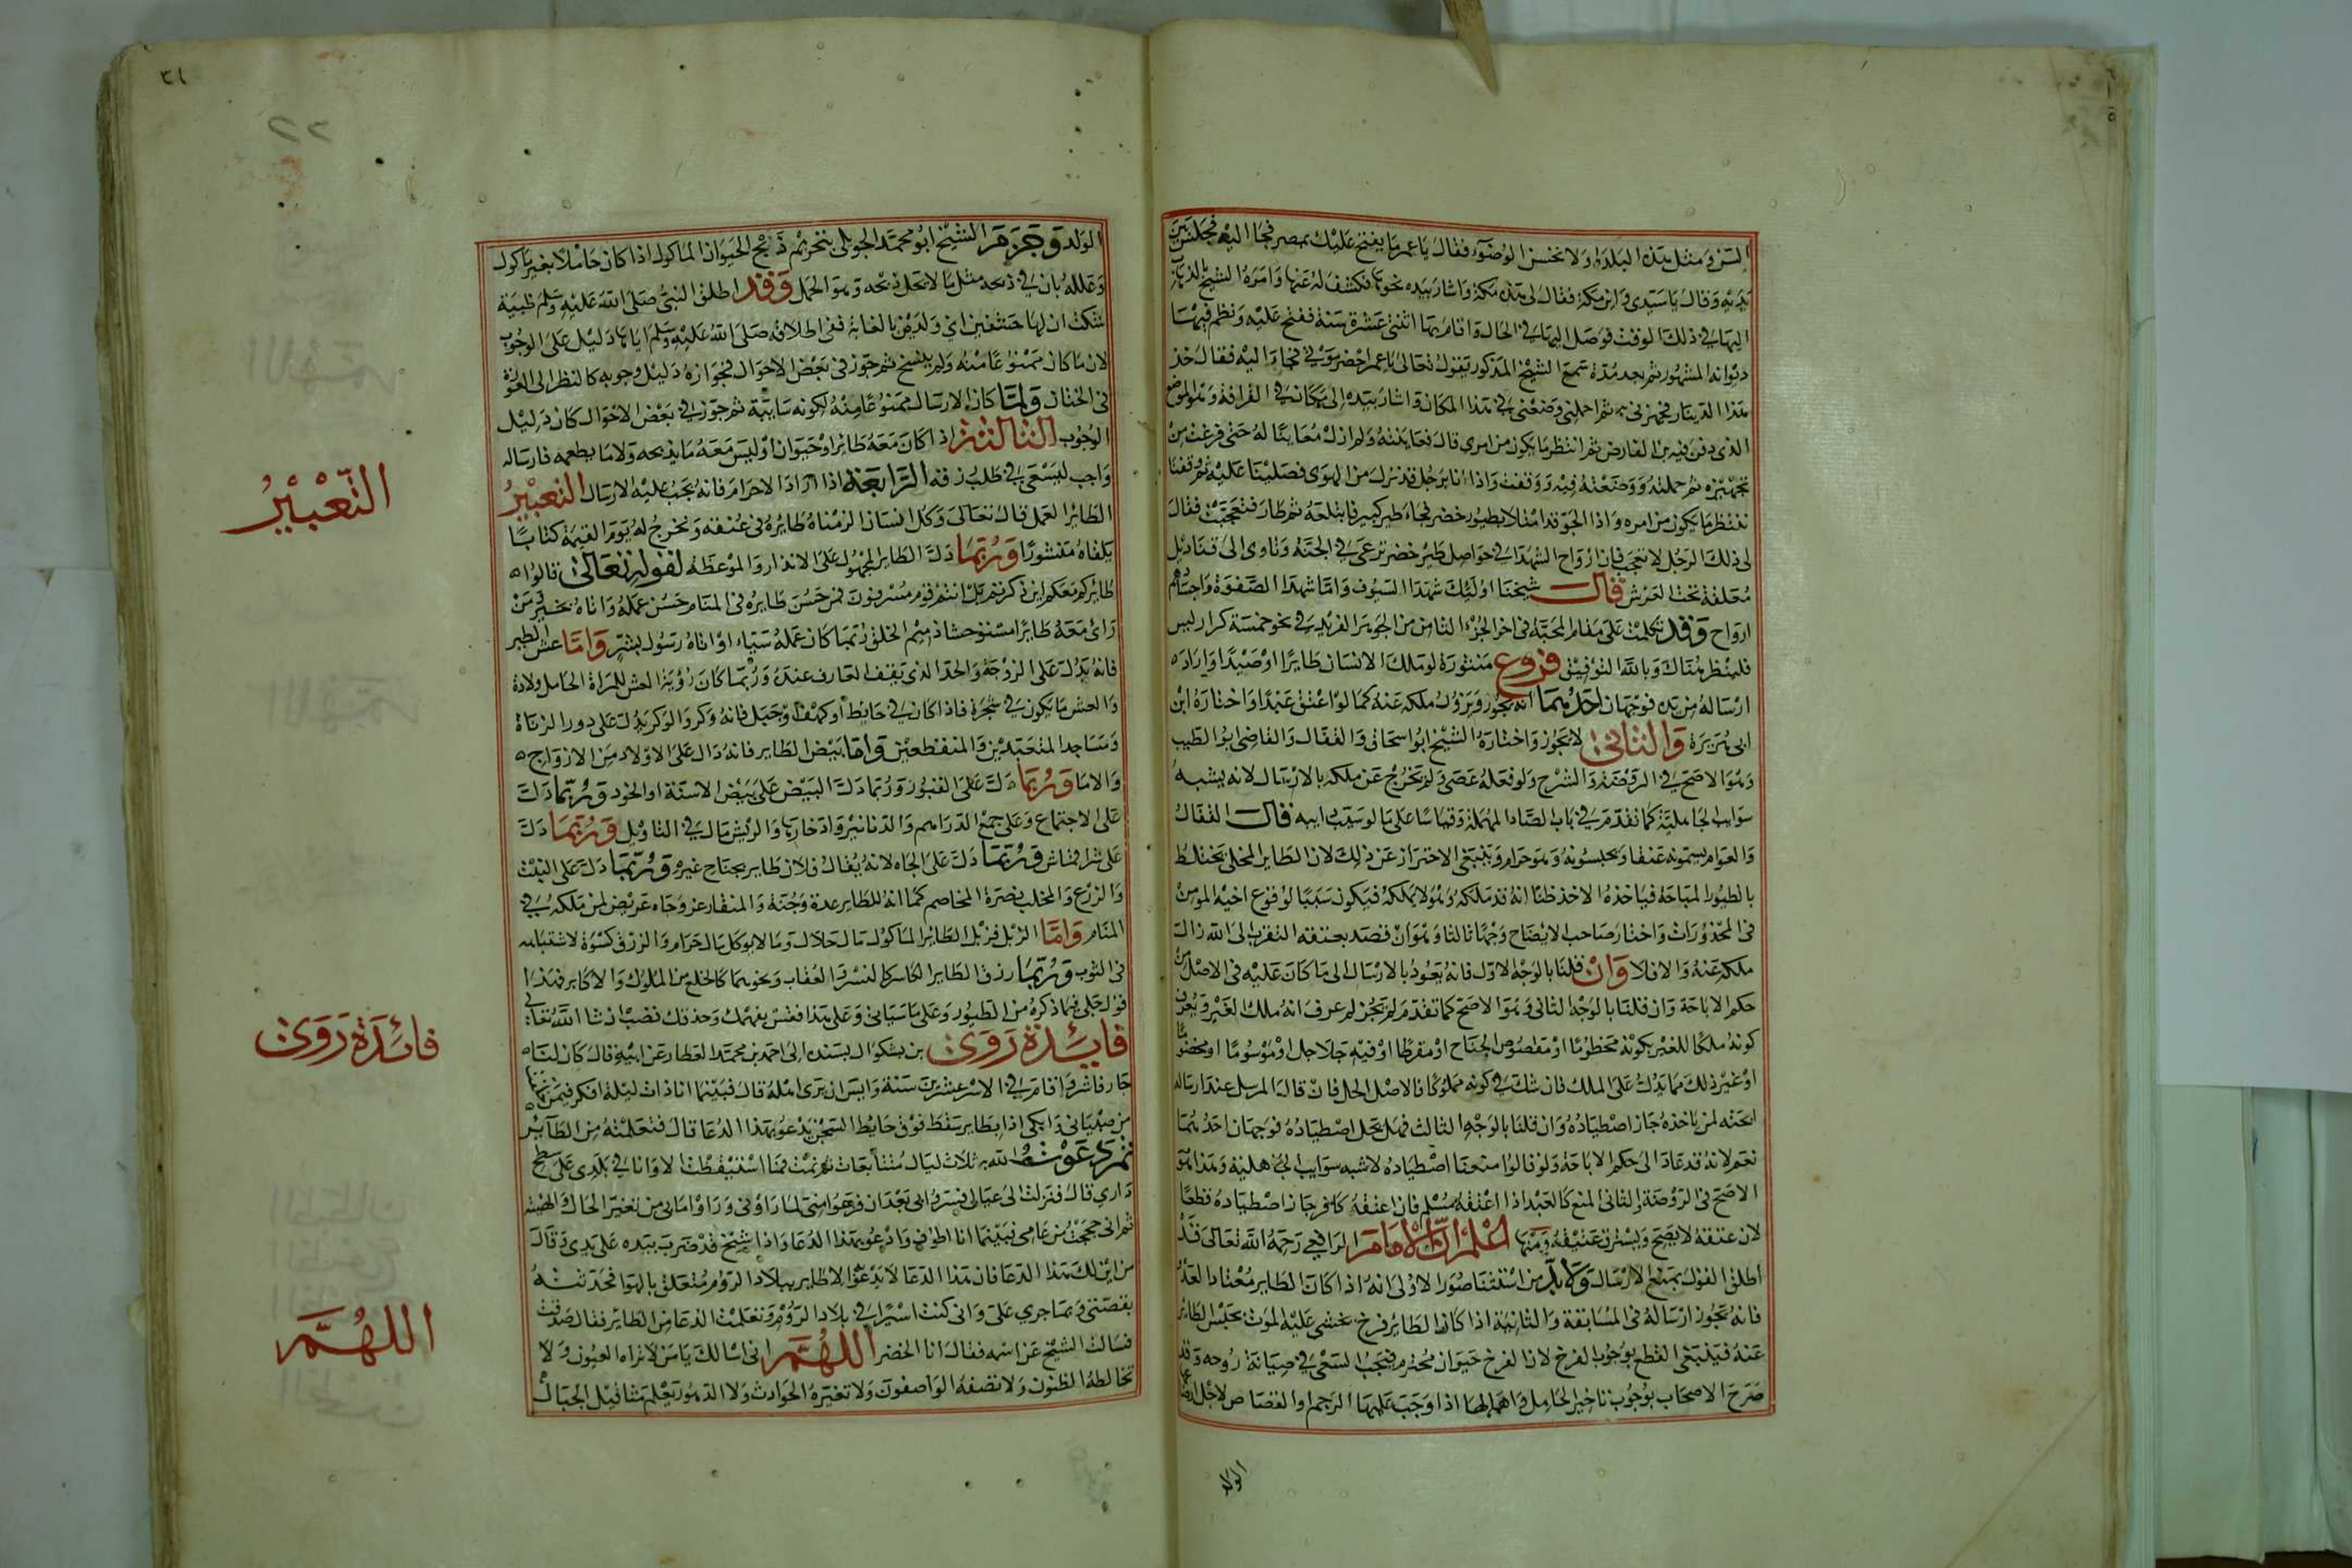 السن ومثل هذه البلدة ولا تحسن الوضوء فقال يا عمر ما يفتح عليك بمصر فجا اليه فجلس بين
يديه وقال يا سيدي واين مكة فقال لي هذه مكة واشار بيده نحوها فكشف له عنها وامره الشيخ بالذهاب
اليها في ذلك الوقت فوصل اليها في الحال واقام بها اثنتي عشرة سنة ففتح عليه ونظم فيها
ديوانه المشهور ثم بعد مدة سمع الشيخ المذكور يقول تعالى يا عمر احضر موتي فجاء اليه فقال خذ
هذا الدينار فجهزني به ثم احملني وضعني في هذا المكان واشار بيده الى مكان في القرافة وهو الموضع
الذي دفن فيه بن الفارض ثم انتظر ما يكون من امري قال فعاينته ولم ازل معاينا له حتى فرغت من
تجهيزه ثم حملته ووضعته فيه ووقفت واذا انا برجل قد نزل من الهوى فصلينا عليه ثم وقفنا
ننتظر ما يكون من امره واذا الجو قد امتلا بطيور خضر فجاء طير كبير فابتلعه ثم طار فتعجبت فقال
لي ذلك الرجل لا تعجب فان ارواح الشهدا في حواصل طير خضر ترعى في الجنة وتاوى الى قناديل
معلقة تحت العرش قال شيخنا اولئك شهدا السيوف واما شهدا الصفوة واجسادهم
ارواح وقد تكلمت على مقام المحبة في اخر الجزء الثامن من الجوهر الفريد في نحو خمسة كراريس
فلينظر هناك وبالله التوفيق فروع منثورة لو ملك الانسان طايرا او صيدا واراد
ارساله من يده فوجهان احدهما انه يجوز ويزول ملكه عنه كما لو اعتق عبدا واختاره ابن
ابي هريرة والثاني لا يجوز واختاره الشيخ ابو اسحاق والقفال والقاضي ابو الطيب
وهو الاصح في الروضة والشرح ولو فعله عصى ولم يخرج عن ملكه بالارسال لانه يشبه
سوايب الجاهلية كما تقدم في باب الصاد المهملة وقياسا على ما لو سيب دابته قال القفال
والعوام يسمونه عتقا ويحبسونه وهو حرام وينبغي الاحتراز عن ذلك لان الطاير المخلى يختلط
بالطيور المباحة فياخذه الاخذ ظنا انه قد ملكه وهو لا يملكه فيكون سببا لوقوع اخيه المومن
في المحذورات واختار صاحب الايضاح وجها ثالثا وهو ان قصد بعتقه التقرب الى الله زال
ملكه عنه والا فلا وان قلنا بالوجه الاول فانه يعود بالارسال الى ما كان عليه في الاصل من
حكم الاباحة وان قلنا بالوجه الثاني وهو الاصح كما تقدم لم يجز لمن عرف انه ملك الغير ويعرف
كونه ملكا للغير بكونه مخطوما او مقصوص الجناح او مقرطا او فيه جلاجل او موسوما او مخضوبا
او غير ذلك مما يدل على الملك فان شك في كونه مملوكا فالاصل الحل فان قال المرسل عند ارساله
ابحته لمن ياخذه جاز اصطياده وان قلنا بالوجه الثالث فهل يحل اصطياده فوجهان احدهما
نعم لانه قد عاد الى حكم الاباحة ولو قالوا منعنا اصطياده لاشبه سوايب الجاهلية وهذا هو
الاصح في الروضة والثاني المنع كالعبد اذا اعتقه مسلم فان اعتقه كافر جاز اصطياده قطعا
لان عتقه لا يصح ويسترق عتيقه ومنها اعلم ان الامام الرافعي رحمه الله تعالى قد
اطلق القول بمنع الارسال ولابد من استثنا صور الاولى انه اذا كان الطاير معتادا العود
فانه يجوز ارساله في المسابقة والثانية اذا كان الطاير فرخ يخشى عليه الموت بحبس الطاير
عنه فينبغي القطع بوجوب الفرخ لان الفرخ حيوان محترم فيجب السعي في صيانة روحه وقد
صرح الاصحاب بوجوب تاخير الحامل وامهالها اذا وجب عليها الرجم والقصاص لاجل ارضاع
الولد
٣١
الولد وجزم الشيخ ابو محمد الجويني بتحريم ذبح الحيوان الماكول اذا كان حاملا بغير ماكول
وعلله بان في ذبحه مثل ما لا يحل ذبحه وهو الحمل وقد اطلق النبي صلى الله عليه وسلم ظبية
شكت ان لها خشفين اي ولدين بالغابة ففي اطلاقه صلى الله عليه وسلم اياها دليل على الوجوب
لان ما كان ممنوعا منه ولم ينسخ ثم جوز في بعض الاحوال فجوازه دليل وجوبه كالنظر الى العورة
في الختان ولما كان الارسال ممنوعا منه لكونه سايبة ثم جوز في بعض الاحوال كان دليل
الوجوب الثالثة اذا كان معه طاير او حيوان او ليس معه ما يذبحه ولا ما يطعمه فارساله
واجب ليسعى في طلب رزقه الرابعة اذا اراد الاحرام فانه يجب عليه الارسال التعبير
الطاير العمل قال تعالى وكل انسان الزمناه طايره في عنقه ونخرج له يوم القيمة كتابا
يلقاه منشورا وربما دل الطاير المجهول على الانذار والموعظة لقوله تعالى قالوا
طايركم معكم اين ذكرتم بل انتم قوم مسرفون فمن حسن طايره في المنام حسن عمله واتاه بخير ومن
راى معه طايرا مستوحشا ذميم الخلق ربما كان عمله سيئا او اتاه رسول بشر واما عش الطير
فانه يدل على الزوجة والحد الذي يقف العارف عنده وربما كان رؤية العش للمراة الحامل ولادة
والعش ما يكون في شجرة فاذا كان في حايط او كهف او جبل فانه وكر والوكر يدل على دور الزناة
ومساجد المتعبدين والمنقطعين واما بيض الطاير فانه دال على الاولاد من الازواج
والاما وربما دل على القبور وربما دل البيض على بيض الاسنة او الخود وربما دل
على الاجتماع وعلى جمع الدراهم والدنانير وادخارها والريش مال في التاويل وربما دل
على شرا قماش وربما دل على الجاه لانه يقال فلان طاير بجناح غيره وربما دل على النبت
والزرع والمخلب نصرة المخاصم كما انه للطاير عدة وجنة والمنقار عز وجاه عريض لمن ملكه في
المنام واما الزبل فزبل الطاير الماكول مال حلال وما لا يوكل مال حرام والزرق كسوة لاشتباهه
في الثوب وربما رزق الطاير الكاسر كالنسر والعقاب ونحوهما كالخلع من الملوك والاكابر فهذا
قول جلي فيما ذكره من الطيور وعلى ما سياتي وعلى هذا فقس بفهمك وحذقك تصب ان شا الله تعالى
فايدة روى بن بشكوال بسنده الى احمد بن محمد العطار عن ابيه قال كان لنا
جار فاسر فاقام في الاسر عشرين سنة وايس ان يرى اهله قال فبينما انا ذات ليلة افكر فيمن خلفت
من صبياني وابكي اذا بطاير سقط فوق حايط السجن يدعو بهذا الدعا قال فتعلمته من الطاير
ثم دعوت الله به ثلاث ليال متتابعات ثم نمت فما استيقظت الا وانا في بلدي على سطح
داري قال فنزلت الى عيالي فسروا بي بعد ان فزعوا مني لما راوني وراوا ما بي من تغير الحال والهيئة
ثم اني حججت من عامي فبينما انا اطوف وادعو بهذا الدعا واذا شيخ قد ضرب بيده على يدي وقال
من اين لك هذا الدعا فان هذا الدعا لا يدعو الا طاير ببلاد الروم متعلق بالهوا فحدثته
بقصتي وما جرى علي واني كنت اسيرا في بلاد الروم وتعلمت الدعا من الطاير فقال صدقت
فسالت الشيخ عن اسمه فقال انا الخضر اللهم اني اسالك يا من لا تراه العيون ولا
تخالطه الظنون ولا تصفه الواصفون ولا تغيره الحوادث ولا الدهور يعلم مثاقيل الجبال
التعبير
فائدة روى
اللهم